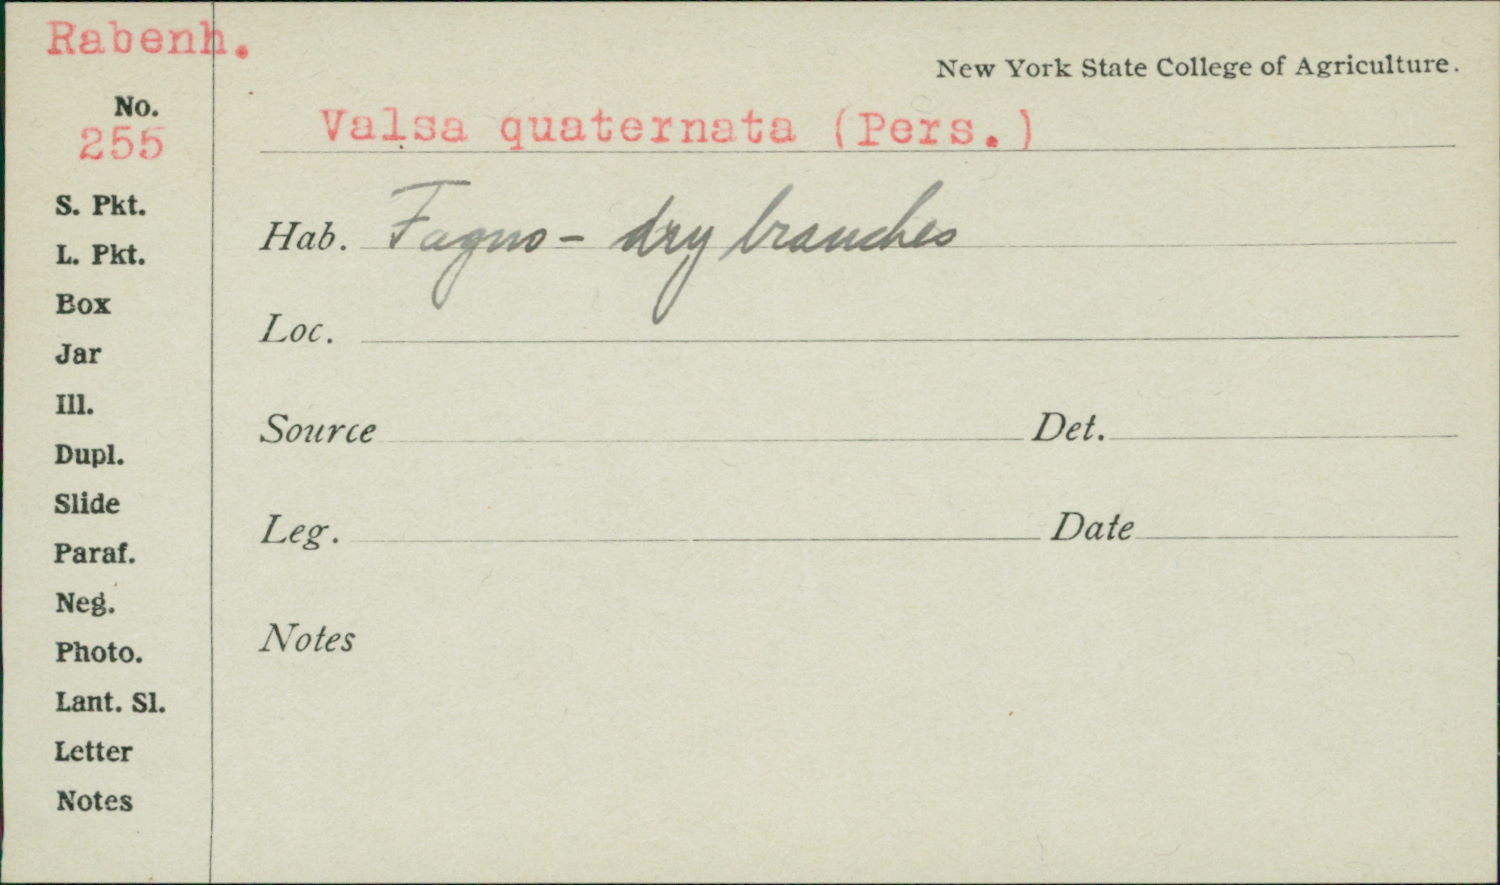 Rabenh.
New York State College of Agriculture.
No.
255
Valsa quaternata (Pers.)
S. Pkt.
L. Pkt.
Box
Jar
Ill.
Dupl.
Slide
Paraf.
Neg.
Photo.
Lant. Sl.
Letter
Notes
Hab. Fagus - dry branches
Loc.
Source Det.
Leg. Date
Notes